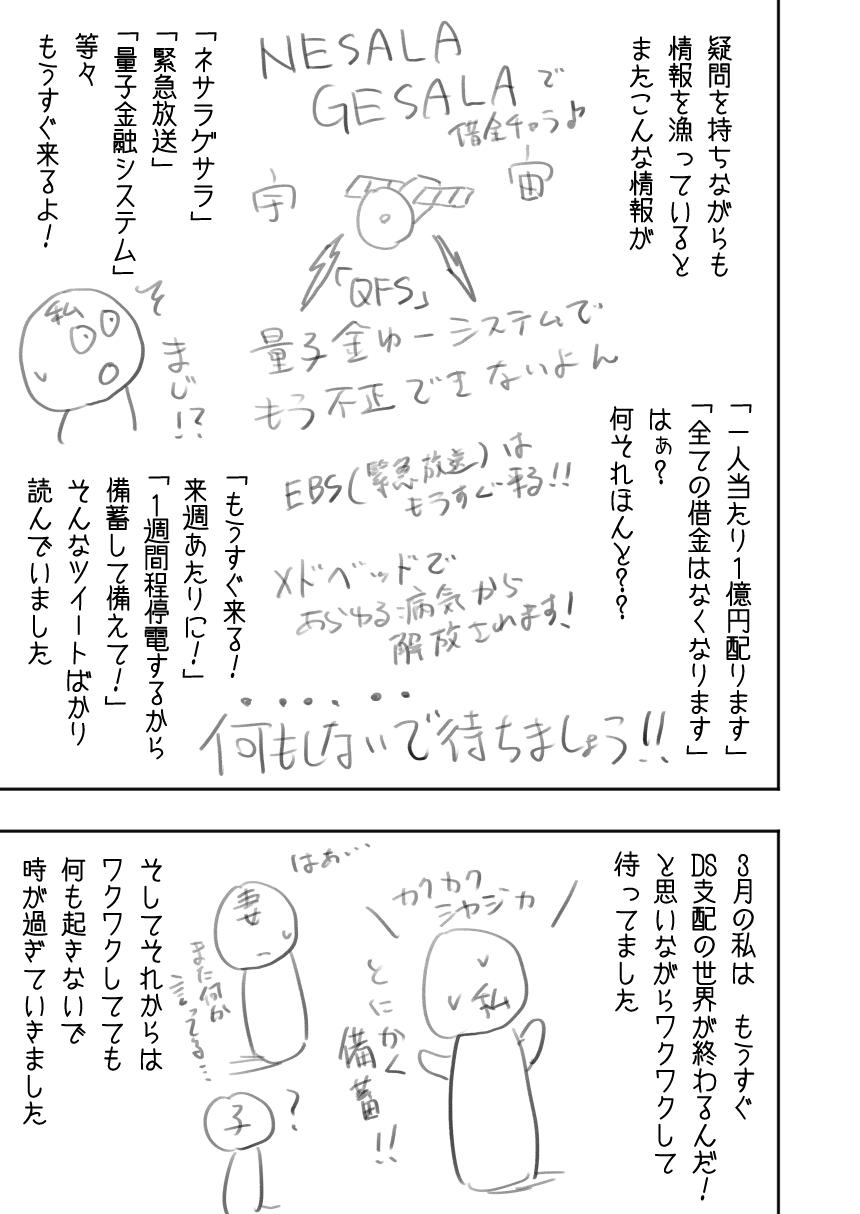 疑問を持ちながらも
情報を漁っていると
またこんな情報が
NESALA
GESALAで
借金チャラよ
宇
宙
「QFS」
量子金ゆーシステムで
もう不正できないよん
「ネサラゲサラ」
「緊急放送」
「量子金融システム」
等々
もうすぐ来るよ！
私
そ
まじ!?
「一人当たり1億円配ります」
「全ての借金はなくなります」
はぁ？
何それほんと？？
EBS(緊急放送)は
もうすぐ来る!!
メドベッドで
あらゆる病気から
解放されます!
何もしないで待ちましょう!!
「もうすぐ来る！
来週あたりに！」
「1週間程停電するから
備蓄して備えて！」
そんなツイートばかり
読んでいました
3月の私は　もうすぐ
DS支配の世界が終わるんだ！
と思いながらワクワクして
待ってました
カクカク
シカジカ
私
とにかく
備蓄!!
はぁ…
妻
また何か
言ってる…
子
?
そしてそれからは
ワクワクしてても
何も起きないで
時が過ぎていきました